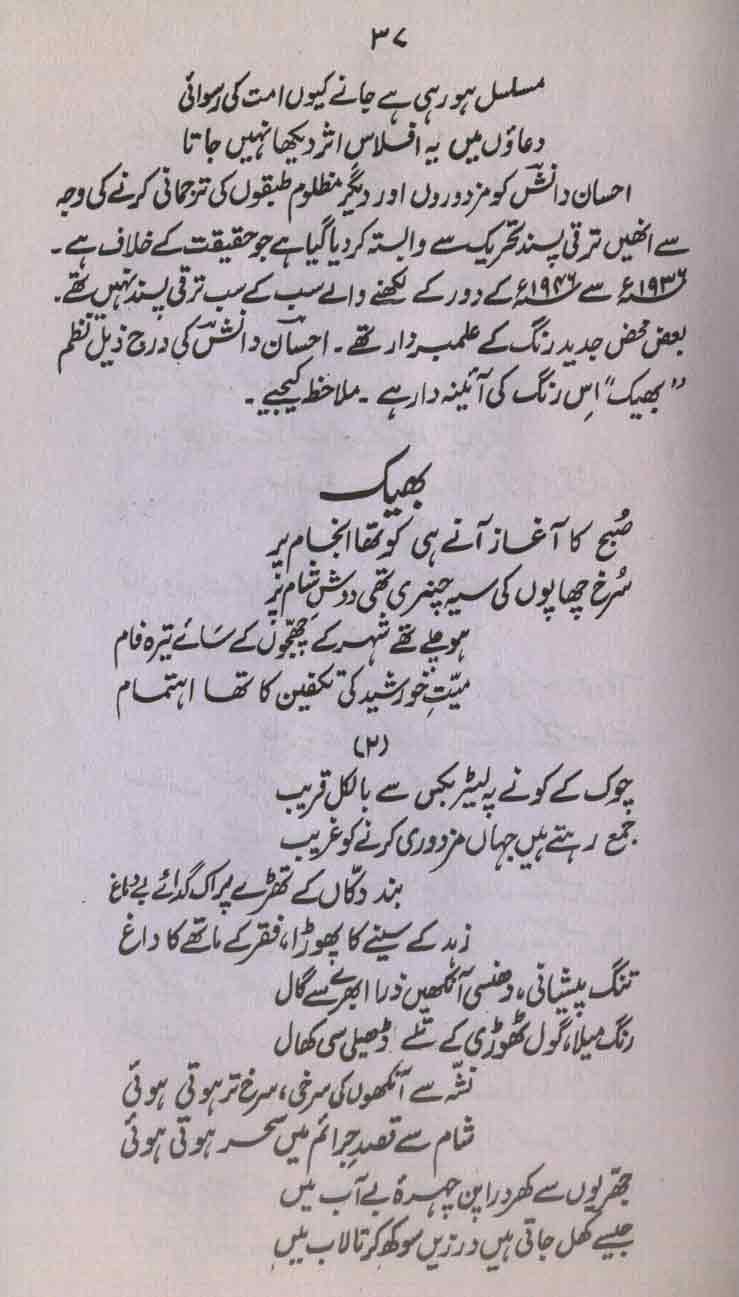 ۳۷
مسلسل ہو رہی ہے جانے کیوں امت کی رسوائی
دعاؤں میں یہ افلاسِ اثر دیکھا نہیں جاتا
احسان دانشؔ کو مزدوروں اور دیگر مظلوم طبقوں کی ترجمانی کرنے کی وجہ
سے انھیں ترقی پسند تحریک سے وابستہ کر دیا گیا ہے جو حقیقت کے خلاف ہے۔
۱۹۳۶ء سے ۱۹۴۶ء کے دور کے لکھنے والے سب کے سب ترقی پسند نہیں تھے۔
بعض محض جدید رنگ کے علمبردار تھے۔ احسان دانشؔ کی درج ذیل نظم
"بھیک" اِس رنگ کی آئینہ دار ہے۔ ملاحظہ کیجیے۔
بھیک
صُبح کا آغاز آنے ہی کو تھا انجام پر
سُرخ چھاپوں کی سیہ چنری تھی دوشِ شام پر
ہو چلے تھے شہر کے چھجّوں کے سَائے تیرہ فام
میّتِ خورشید کی تکفین کا تھا اہتمام
(۲)
چوک کے کونے پہ لیٹر بکس سے بالکل قریب
جمع رہتے ہیں جہاں مزدوری کرنے کو غریب
بند دکّاں کے تھڑے پر اک گدائے بے دماغ
زہد کے سینے کا پھوڑا، فقر کے ماتھے کا داغ
تنگ پیشانی، دھنسی آنکھیں ذرا ابھرے سے گال
رنگ میلا، گول ٹھوڑی کے تلے ڈھیلی سی کھال
نشّہ سے آنکھوں کی سرخی، سرخ تر ہوتی ہوئی
شام سے قصدِ جرائم میں سحر ہوتی ہوئی
جھرّیوں سے کھردرا پن چہرۂ بے آب میں
جیسے کھل جاتی ہیں درزیں سوکھ کر تالاب میں